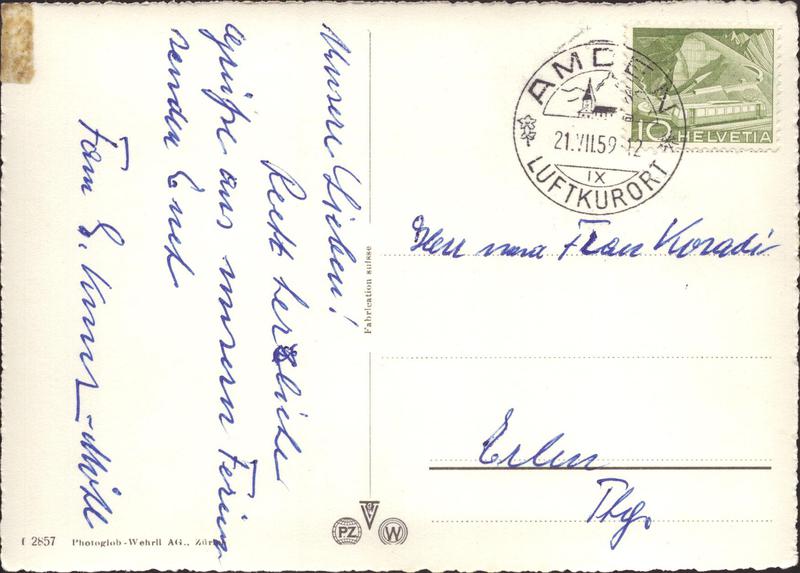 Unsere Lieben!
Recht herzliche
Grüsse aus unsern Ferien
senden Euch
Fam E.
AMDEN
21.VII.59-12
IX
LUFTKURORT
10 HELVETIA
Herr und Frau Koradi
Erlen
Thg.
Fabrication suisse
PZ
W
f 2857 Photoglob-Wehrli AG., Zürich